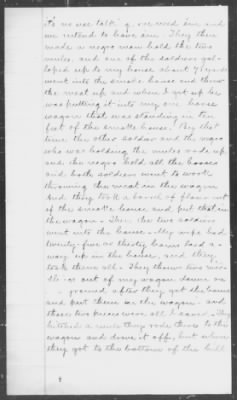 it's no use talk'g one need our and
we intend to have one. They then
made a negro man hold the two
mules, and one of the soldiers gal-
loped up to my house about
went into the smoke house and threw
the meat up and when I got up he
was putting it into my one horse
wagon that was standing in ten
feet of the smoke house. By that
time the other soldier and the negro
who was holding the mules rode up
and the negro held all the horses
and both soldiers went to work
throwing the meat in the wagon
and they took a barrel of flour out
of the smoke house and put that in
the wagon. Then the two soldiers
went into the house. My wife had
twenty-five or thirty hams laid a-
way up in the house, and they
took them all. They threw two
out of my wagon down on
ground after they got the hams
and put them in the wagon and
those two pieces were all I saved. They
hitched a mule they rode there to the
wagon and drove it off, but when
they got to the bottom of the hill